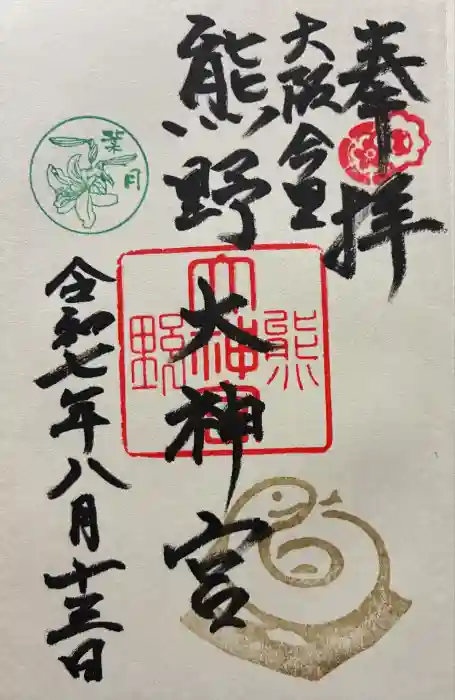 奉拝
大阪今里
熊野大神宮
熊野大神宮
葉月
令和七年八月十三日